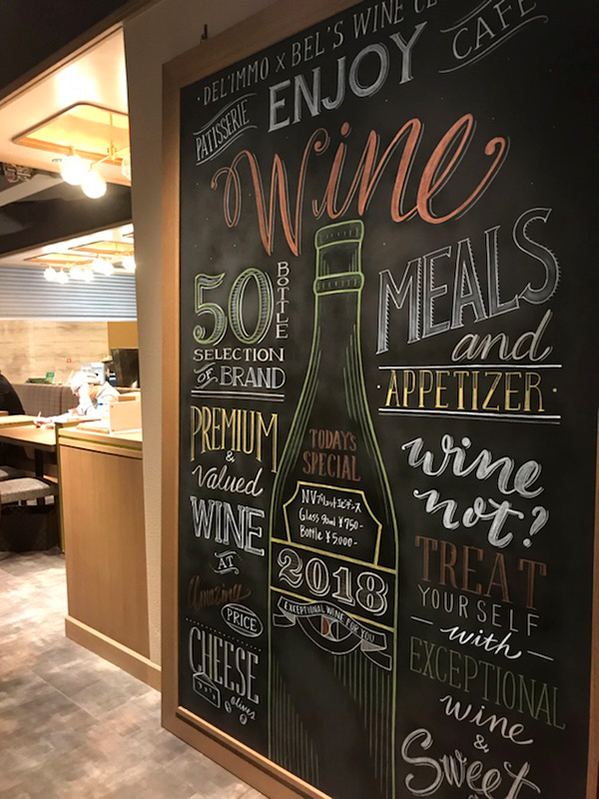 DEL'IMMO x BEL'S WINE
PATISSERIE
ENJOY
CAFE
Wine
50
BOTTLE
SELECTION
OF BRAND
PREMIUM
&
Valued
WINE
AT
Amazing
PRICE
CHEESE
olives
TODAYS
SPECIAL
Glass 90ml ¥750-
Bottle ¥5000-
2018
EXCEPTIONAL WINE FOR YOU
MEALS
and
·APPETIZER·
wine
not?
TREAT
YOURSELF
with
EXCEPTIONAL
wine
&
Sweet